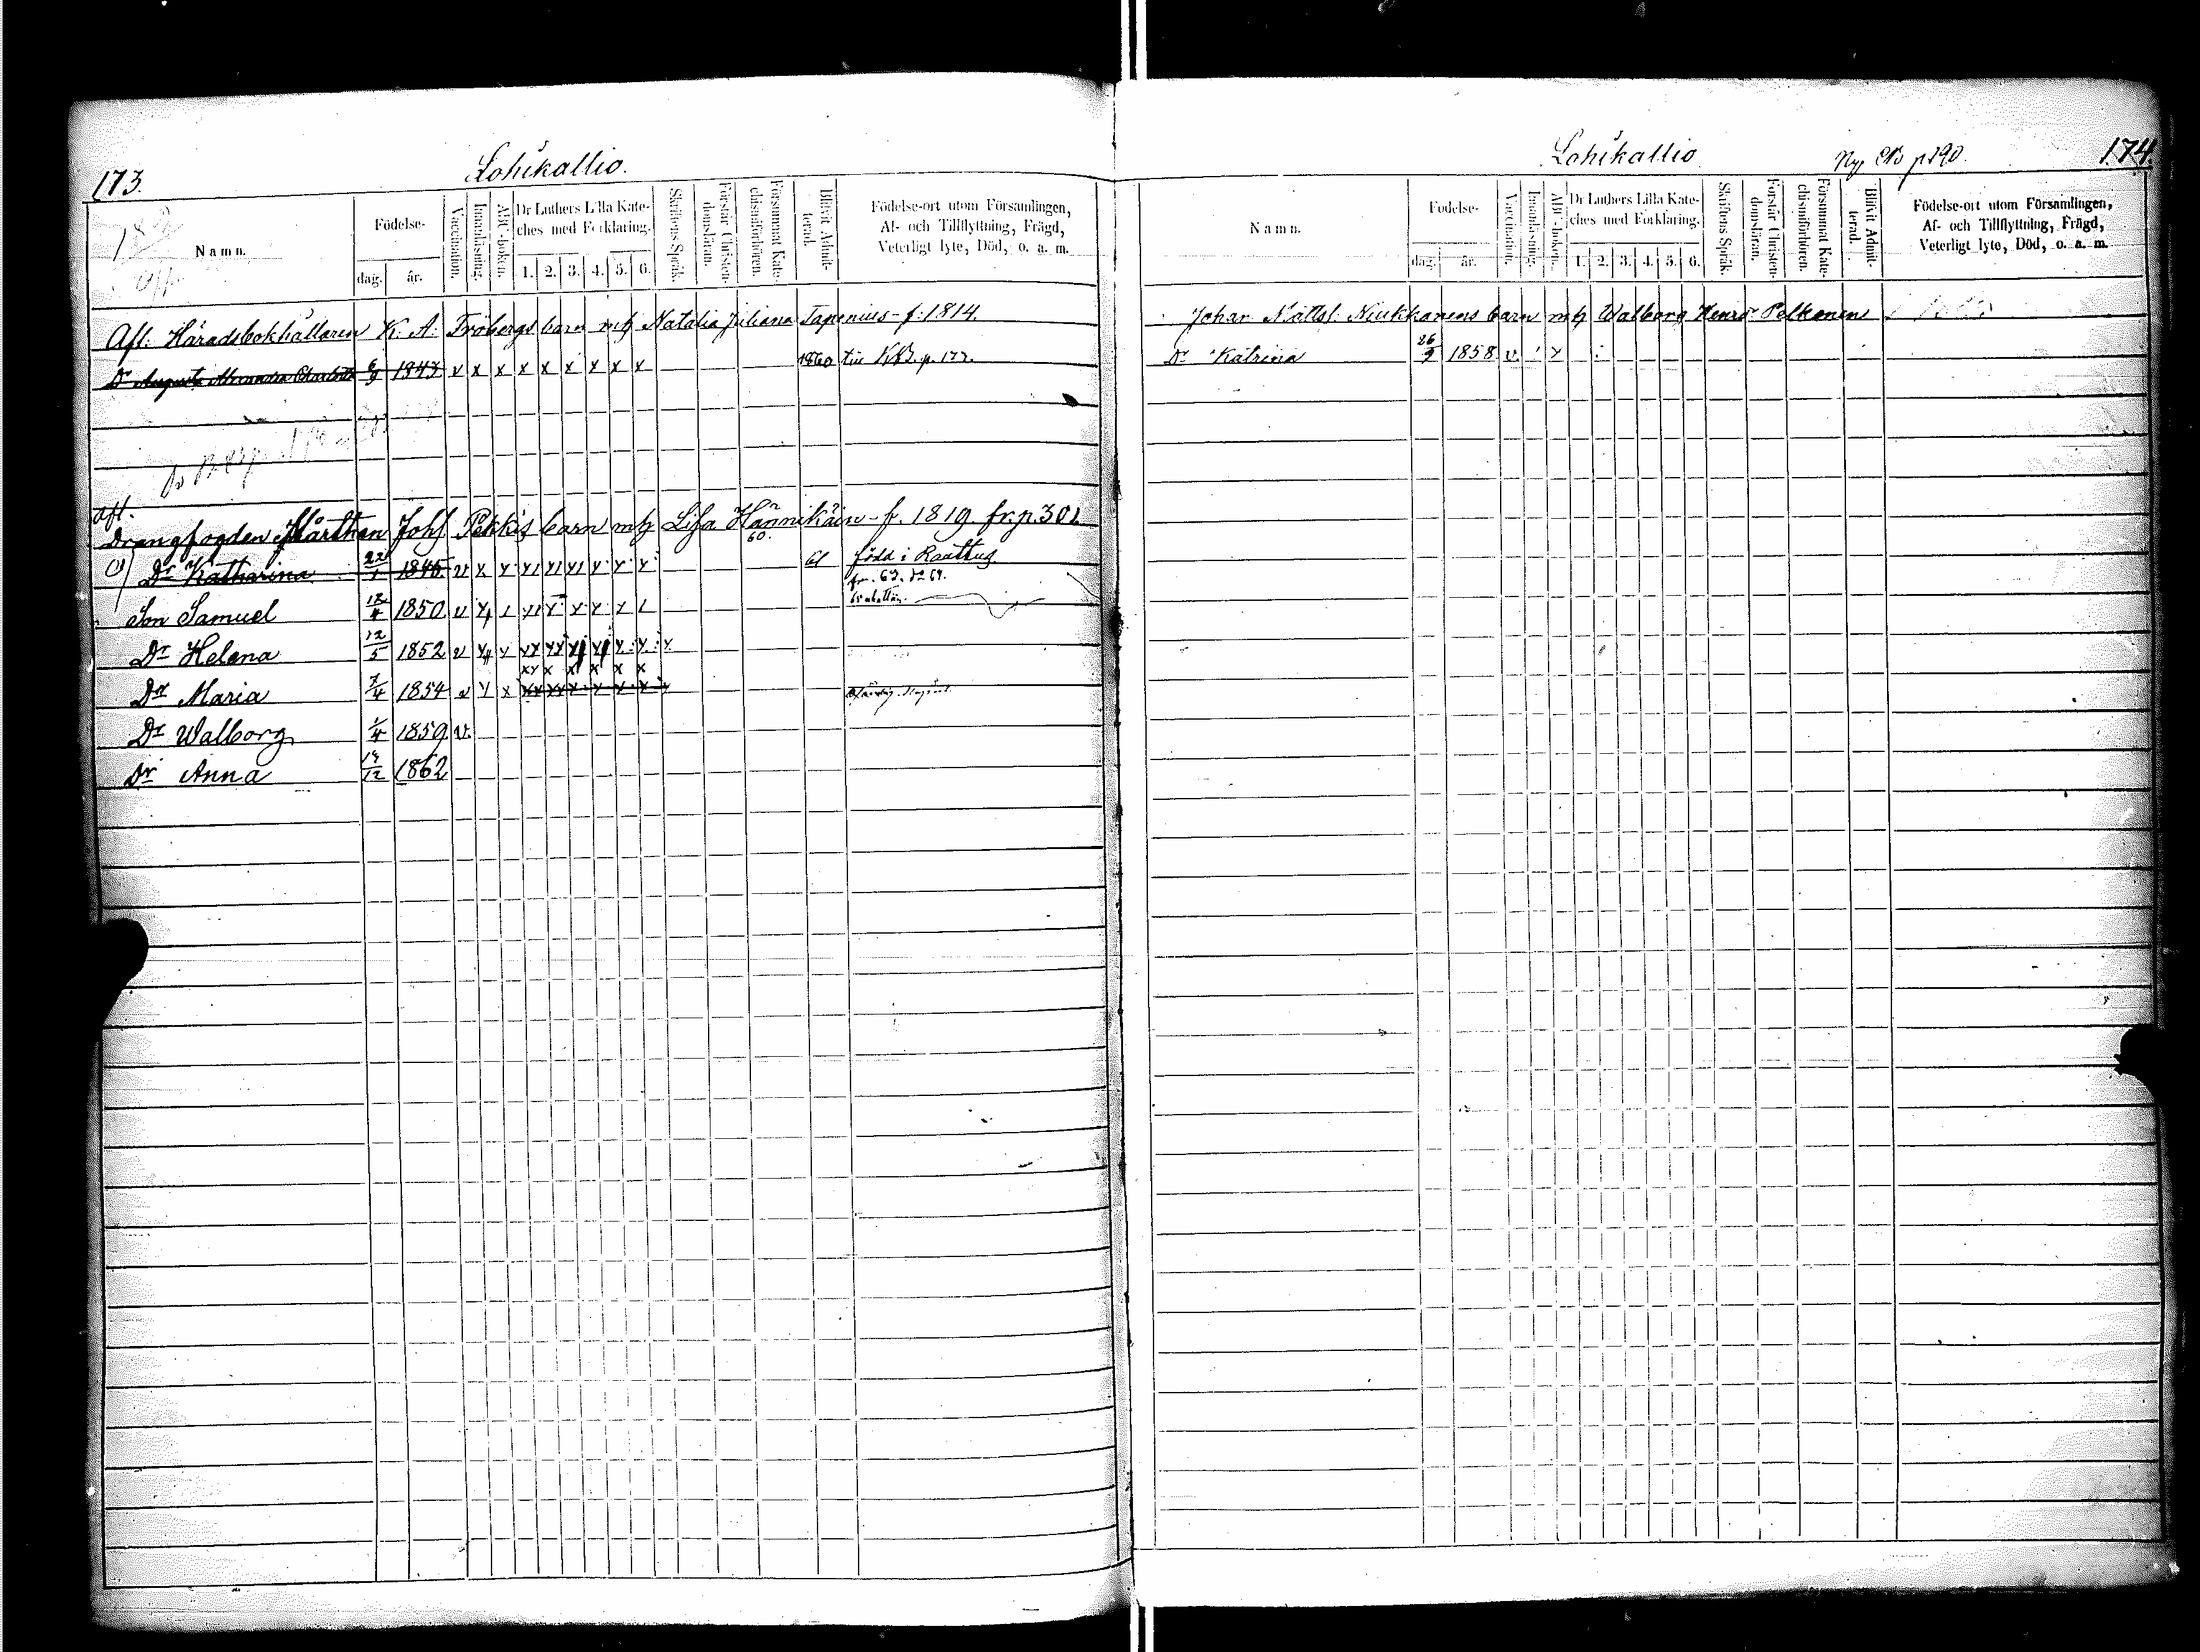 173.
Lohikallio.
Namn.
Födelse-
dag.
år.
Vaccination.
Innanläsning.
ABC-boken.
Dr Luthers Lilla Kate-
ches med Förklaring.
1. 2. 3. 4. 5. 6.
Skriftens Språk.
Förstår Christen-
domsläran.
Försummat Kate-
chismiförhören.
Blifvit Admit-
terad.
Födelse-ort utom Församlingen,
Af- och Tillflyttning, Frägd,
Veterligt lyte, Död, o. a. m.
Afl. Häradsbokhållaren K. A. Fröbergs barn m/h Natalia Juliana Tapenius - f. 1814
Dr Augusta Alexandra Charlotta 6/9 1843 v x x x x x x x x 1860 till KB. p. 177.
Afl.
Drängfogden Mårthen Johs Pekkis barn m/h Lisa Hännikäin - f. 1819. fr. p. 301
60.
Dr Katharina 22/1 1846 v x x x1 x1 x1 x x x 61 född i Rauttus
Son Samuel 12/4 1850 v
Dr Helena 12/5 1852 v
Dr Maria 7/4 1854 v x x
Dr Walborg 1/4 1859 v.
Dr Anna 19/12 1862
Lohikallio
Ny CB p 190.
174.
Namn.
Födelse-
dag.
år.
Vaccination.
Innanläsning.
ABC-boken.
Dr Luthers Lilla Kate-
ches med Förklaring.
1. 2. 3. 4. 5. 6.
Skriftens Språk.
Förstår Christen-
domsläran.
Försummat Kate-
chismiförhören.
Blifvit Admit-
terad.
Födelse-ort utom Församlingen,
Af- och Tillflyttning, Frägd,
Veterligt lyte, Död, o. a. m.
Johan Mattss Niukkanens barn m/h Walborg Henrsr Pelkonen
Dr Katrina 26/9 1858 v.